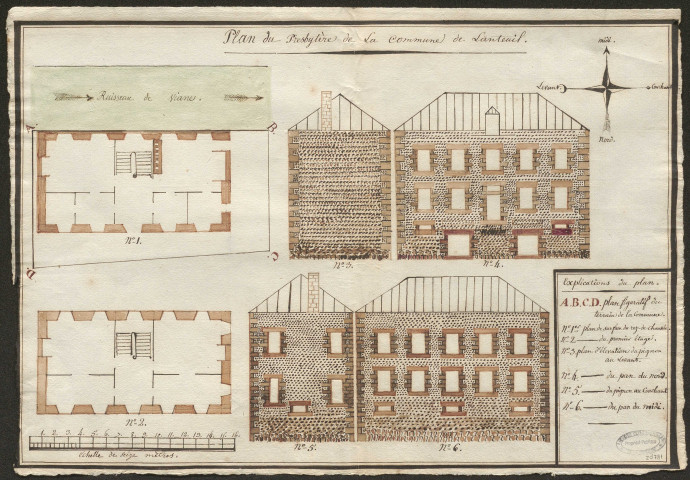 Plan du Presbytère de La Commune de Lanteuil.
midi.
Levant
Couchant
Nord.
Ruisseau de
A
B
N°1.
D
C
N°3.
N°4.
Explications du plan.
A.B.C.D. plan figuratif du
terrain de la Commune.
N°1er plan de surface du rez-de-chaussée
N°2 du premier étage.
N°3 plan d'élévation du pignon
au Levant.
N°4. du parc du nord.
N°5. du pignon au Couchant
N°6. du parc du midi.
N°2.
N°5.
N°6.
1. 2. 3. 4. 5. 6. 7. 8. 9. 10. 11. 12. 13. 14. 15. 16.
échelle de seize mètres.